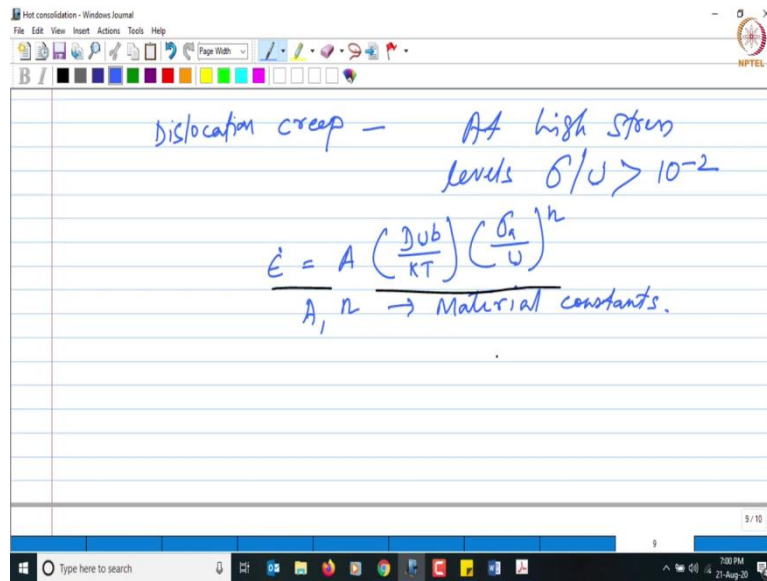 Hot consolidation - Windows Journal
File Edit View Insert Actions Tools Help
Page Width
NPTEL
B I
Dislocation creep - At high stress
levels σ/U > 10-2
ε̇ = A (DUb/KT) (σa/U)^n
A, n → Material constants.
9/10
9
Type here to search
7:00 PM
21-Aug-20